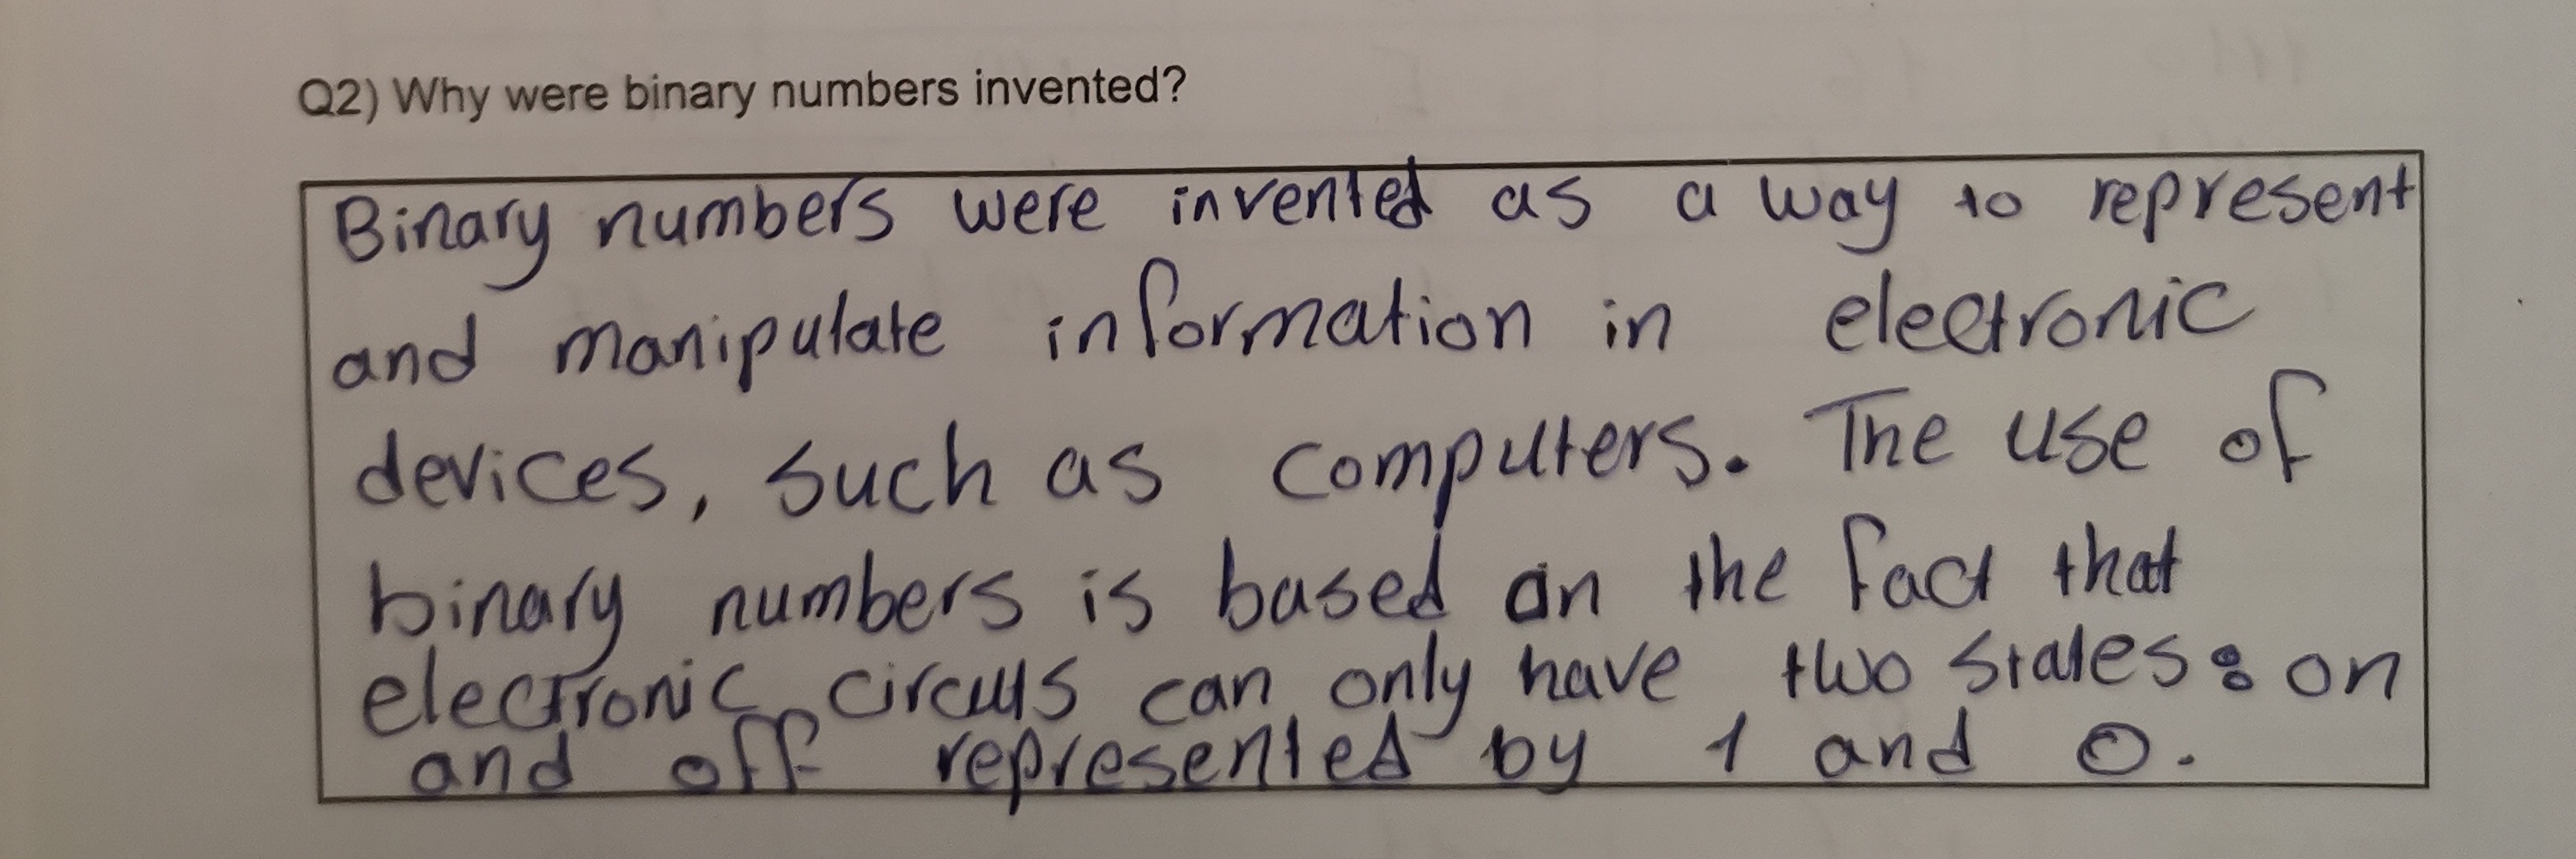 Q2) Why were binary numbers invented?
Binary numbers were invented as a way to represent
and manipulate information in electronic
devices, such as computers. The use of
binary numbers is based on the fact that
electronic circuits can only have two states: on
and off represented by 1 and 0.